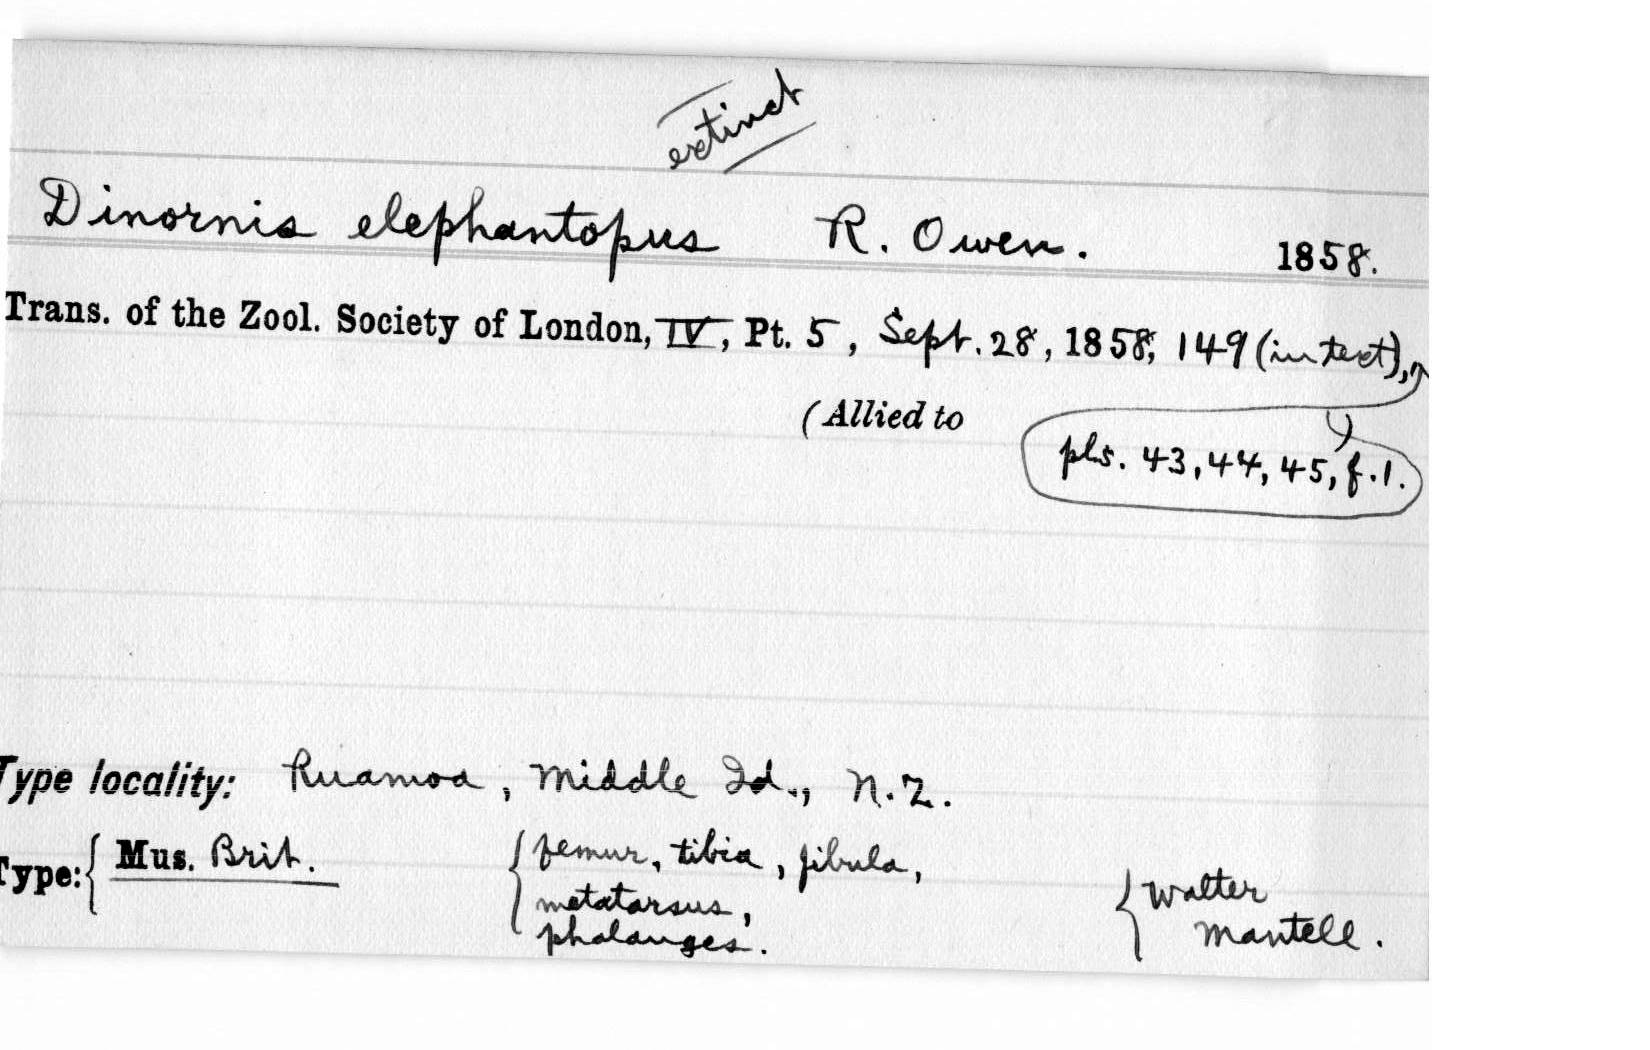 extinct
Dinornis elephantopus R. Owen. 1858.
Trans. of the Zool. Society of London, IV, Pt. 5, Sept. 28, 1858, 149 (in text),
(Allied to
pls. 43, 44, 45, f.1.
Type locality: Ruamoa, Middle Id., N.Z.
Type: { Mus. Brit. { femur, tibia, fibula,
metatarsus,
phalanges. { Walter
Mantell.